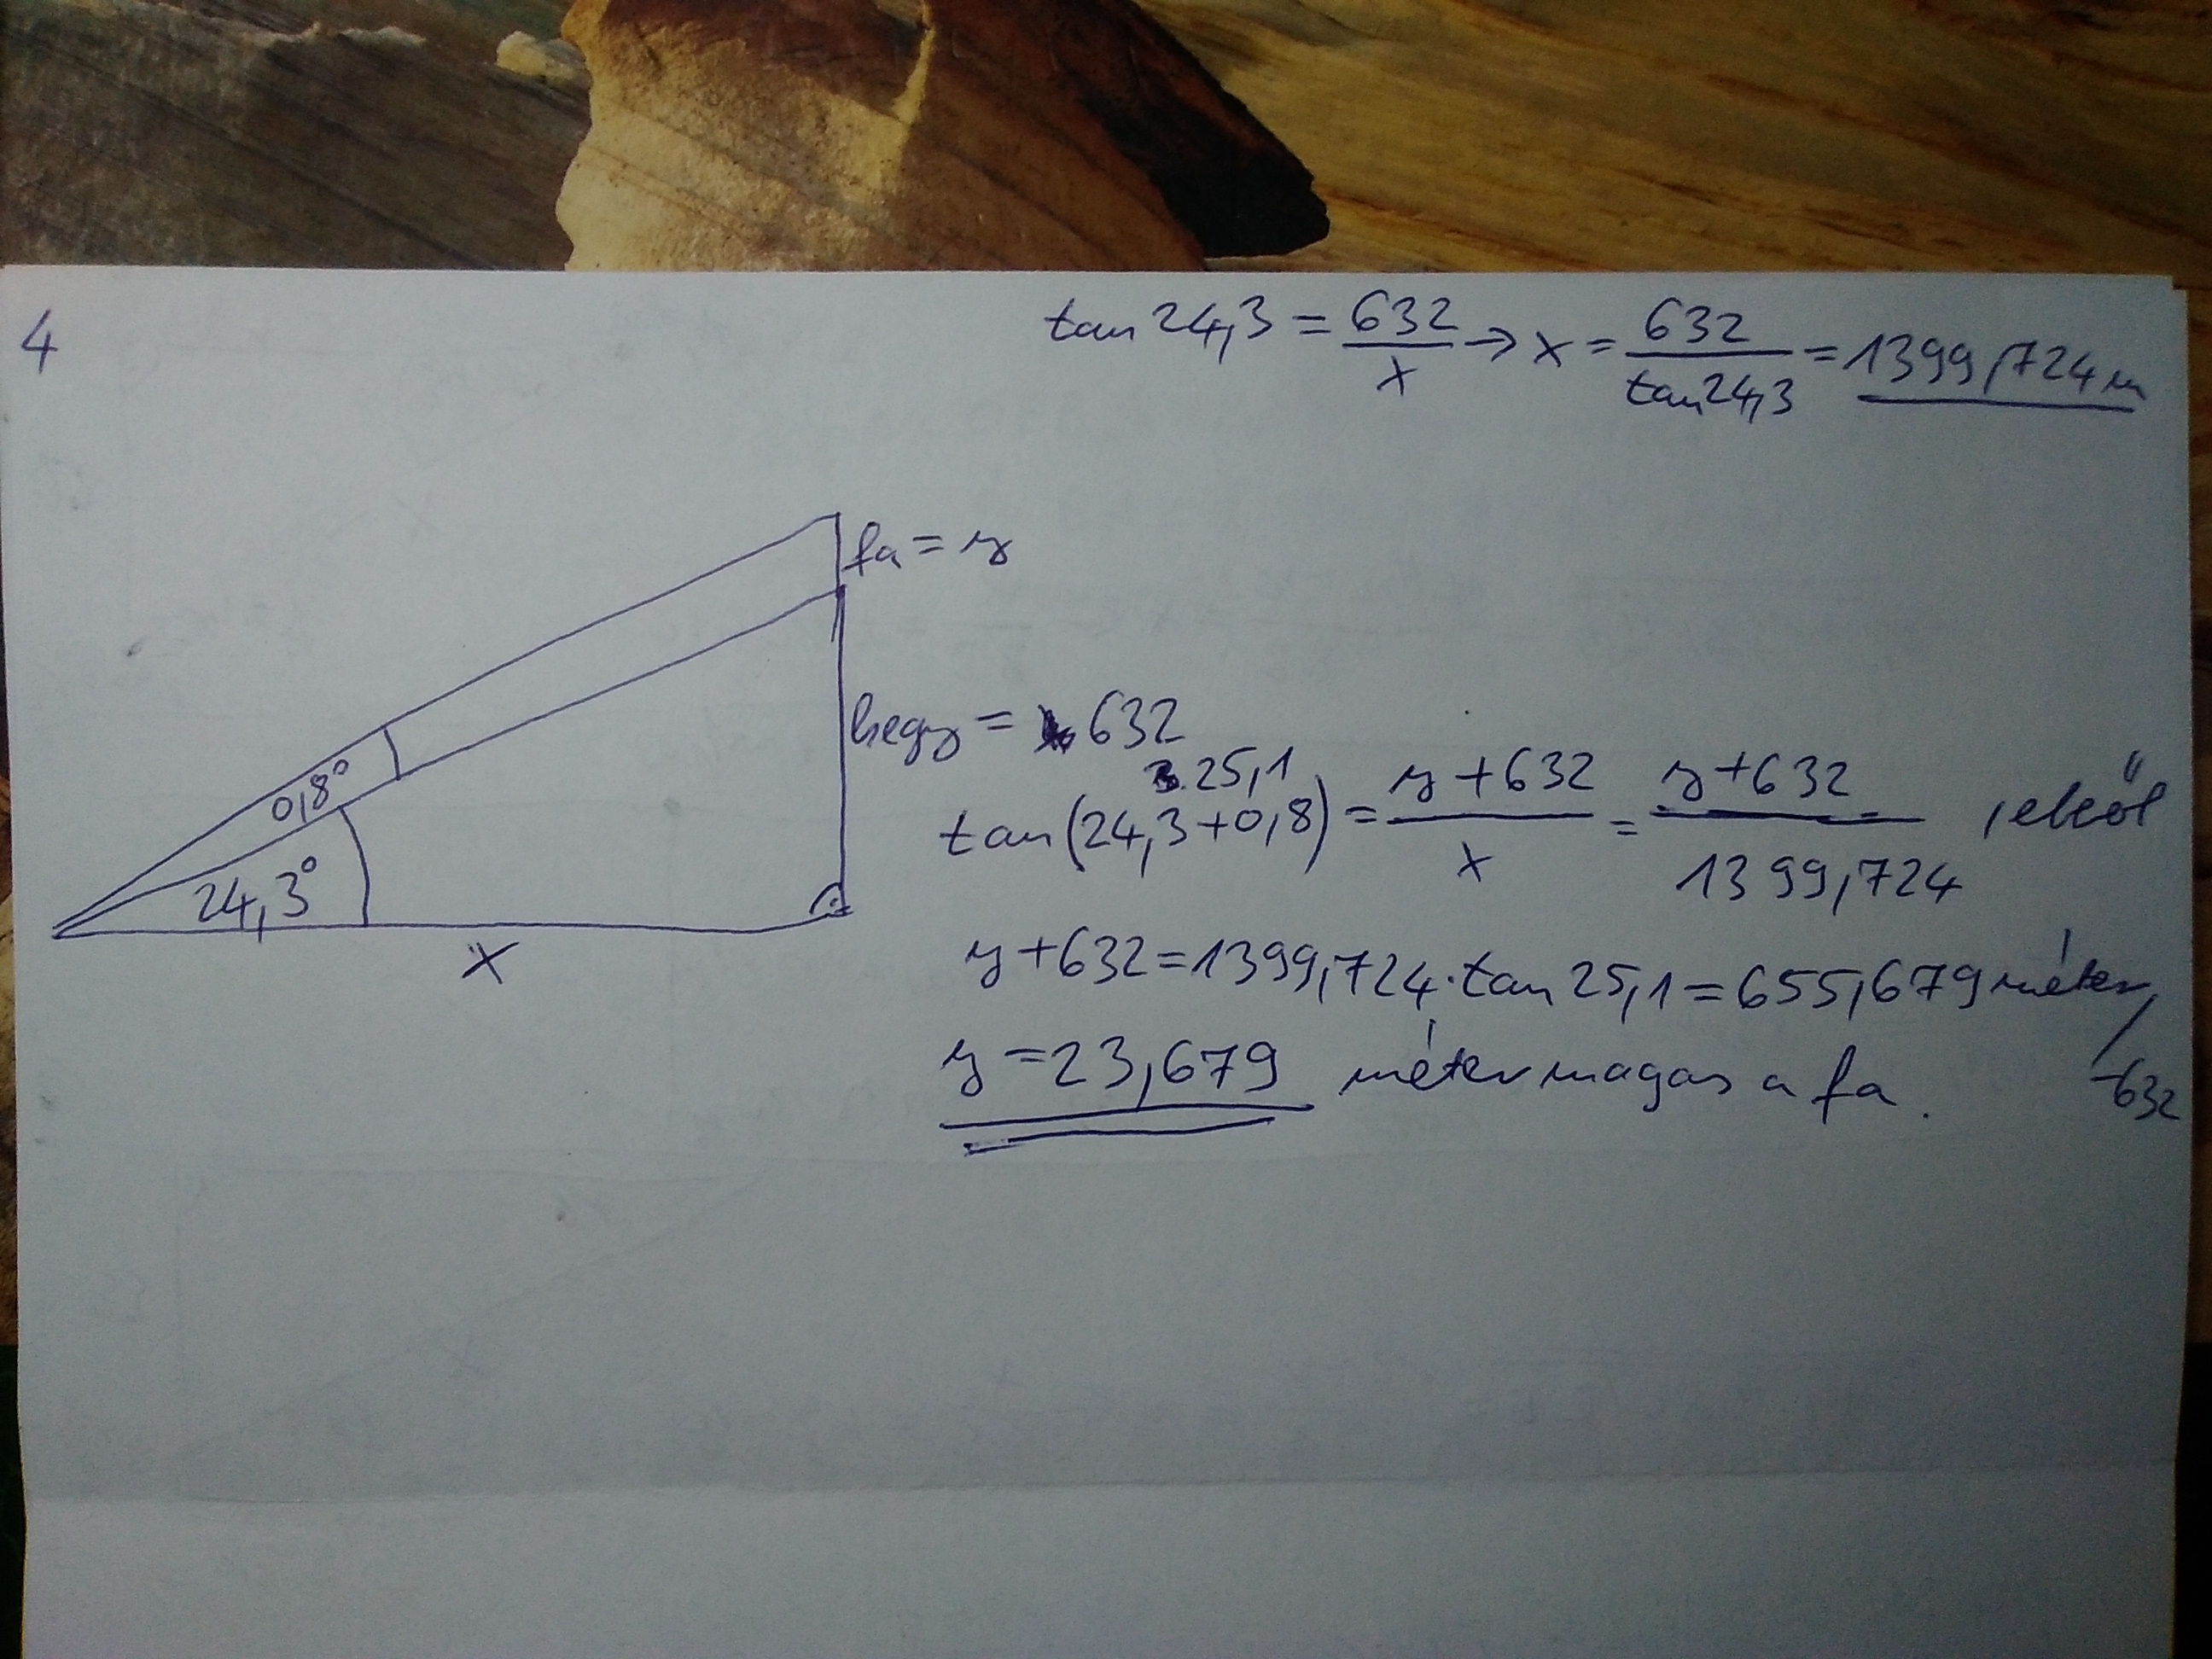 4
tan 24,3 = 632/x → x = 632/tan 24,3 = 1399,724 m
fa = y
hegy = 632
0,8°
24,3°
x
25,1
tan (24,3+0,8) = y+632/x = y+632/1399,724 , ebből
y+632 = 1399,724 · tan 25,1 = 655,679 méter /-632
y = 23,679 méter magas a fa.